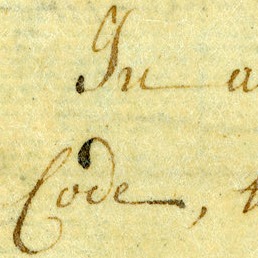 In a
Code,